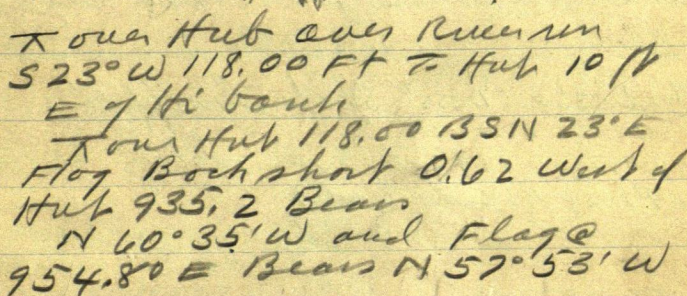 ⊼ over Hub over River run
S 23° W 118.00 Ft To Hub 10 ft
E of Hi bank
⊼ over Hub 118.00 BS N 23° E
Flag Back short 0.62 West of
Hub 935.2 Bears
N 60° 35' W and Flag @
954.80 E Bears N 57° 53' W